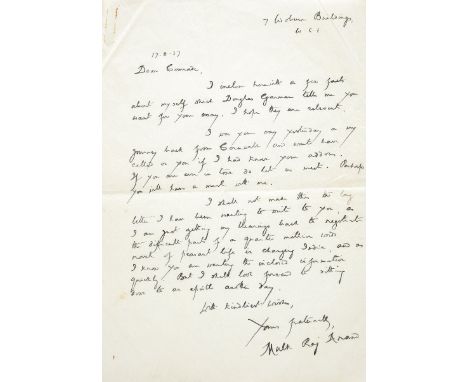 7 Woburn Buildings,
W C 1
17-8-37
Dear Comrade,
I enclose herewith a few facts
about myself which Douglas Garman tells me you
want for your essay. I hope they are relevant.
I was your way yesterday, on my
journey back from Cornwall and would have
called on you if I had known your address.
If you are ever in London do let us meet. Perhaps
you will have a meal with me.
I shall not make this the long
letter I have been wanting to write to you as
I am just getting my bearings back to negotiate
the difficult part of a quarter million words
novel of peasant life in changing India and as
I know you are wanting the enclosed information
quickly. But I shall look forward to sitting
down to an epistle another day.
With kindliest wishes,
Yours fraternally,
Mulk Raj Anand